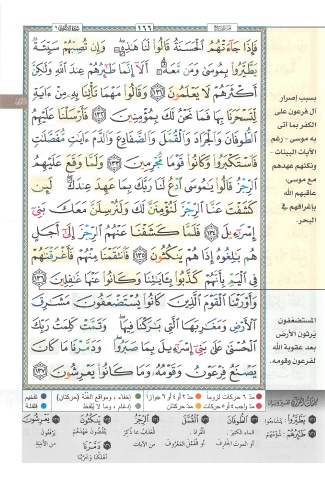 ١٦٦
فَإِذَا جَآءَتْهُمُ ٱلْحَسَنَةُ قَالُوا۟ لَنَا هَـٰذِهِۦ وَإِن تُصِبْهُمْ سَيِّئَةٌ
يَطَّيَّرُوا۟ بِمُوسَىٰ وَمَن مَّعَهُۥٓ أَلَآ إِنَّمَا طَـٰٓئِرُهُمْ عِندَ ٱللَّهِ وَلَـٰكِنَّ
أَكْثَرَهُمْ لَا يَعْلَمُونَ ١٣١ وَقَالُوا۟ مَهْمَا تَأْتِنَا بِهِۦ مِنْ ءَايَةٍ
لِّتَسْحَرَنَا بِهَا فَمَا نَحْنُ لَكَ بِمُؤْمِنِينَ ١٣٢ فَأَرْسَلْنَا عَلَيْهِمُ
ٱلطُّوفَانَ وَٱلْجَرَادَ وَٱلْقُمَّلَ وَٱلضَّفَادِعَ وَٱلدَّمَ ءَايَـٰتٍ مُّفَصَّلَـٰتٍ
فَٱسْتَكْبَرُوا۟ وَكَانُوا۟ قَوْمًا مُّجْرِمِينَ ١٣٣ وَلَمَّا وَقَعَ عَلَيْهِمُ
ٱلرِّجْزُ قَالُوا۟ يَـٰمُوسَى ٱدْعُ لَنَا رَبَّكَ بِمَا عَهِدَ عِندَكَ لَئِن
كَشَفْتَ عَنَّا ٱلرِّجْزَ لَنُؤْمِنَنَّ لَكَ وَلَنُرْسِلَنَّ مَعَكَ بَنِىٓ
إِسْرَٰٓءِيلَ ١٣٤ فَلَمَّا كَشَفْنَا عَنْهُمُ ٱلرِّجْزَ إِلَىٰٓ أَجَلٍ
هُم بَـٰلِغُوهُ إِذَا هُمْ يَنكُثُونَ ١٣٥ فَٱنتَقَمْنَا مِنْهُمْ فَأَغْرَقْنَـٰهُمْ
فِى ٱلْيَمِّ بِأَنَّهُمْ كَذَّبُوا۟ بِـَٔايَـٰتِنَا وَكَانُوا۟ عَنْهَا غَـٰفِلِينَ ١٣٦
وَأَوْرَثْنَا ٱلْقَوْمَ ٱلَّذِينَ كَانُوا۟ يُسْتَضْعَفُونَ مَشَـٰرِقَ
ٱلْأَرْضِ وَمَغَـٰرِبَهَا ٱلَّتِى بَـٰرَكْنَا فِيهَا وَتَمَّتْ كَلِمَتُ رَبِّكَ
ٱلْحُسْنَىٰ عَلَىٰ بَنِىٓ إِسْرَٰٓءِيلَ بِمَا صَبَرُوا۟ وَدَمَّرْنَا مَا كَانَ
يَصْنَعُ فِرْعَوْنُ وَقَوْمُهُۥ وَمَا كَانُوا۟ يَعْرِشُونَ ١٣٧
بسبب إصرار
آل فرعون على
الكفر بما أتى
به موسى - رغم
الآيات البينات -
ونكثهم عهدهم
مع موسى،
عاقبهم الله
بإغراقهم في
البحر.
المستضعفون
يرثون الأرض
بعد عقوبة الله
لفرعون وقومه.
مدّ ٦ حركات لزوماً مدّ ٢ أو ٤ أو ٦ جوازاً إخفاء، ومواقع الغُنَّة (حركتان) تفخيم
مدّ واجب ٤ أو ٥ حركات مدّ حركتان إدغام، وما لا يُلفظ قلقلة
يَطَّيَّرُوا
طَائِرُهُمْ
الطُّوفَانَ
القُمَّلَ
الرِّجْزُ
يَنكُثُونَ
دَمَّرْنَا
يَعْرِشُونَ